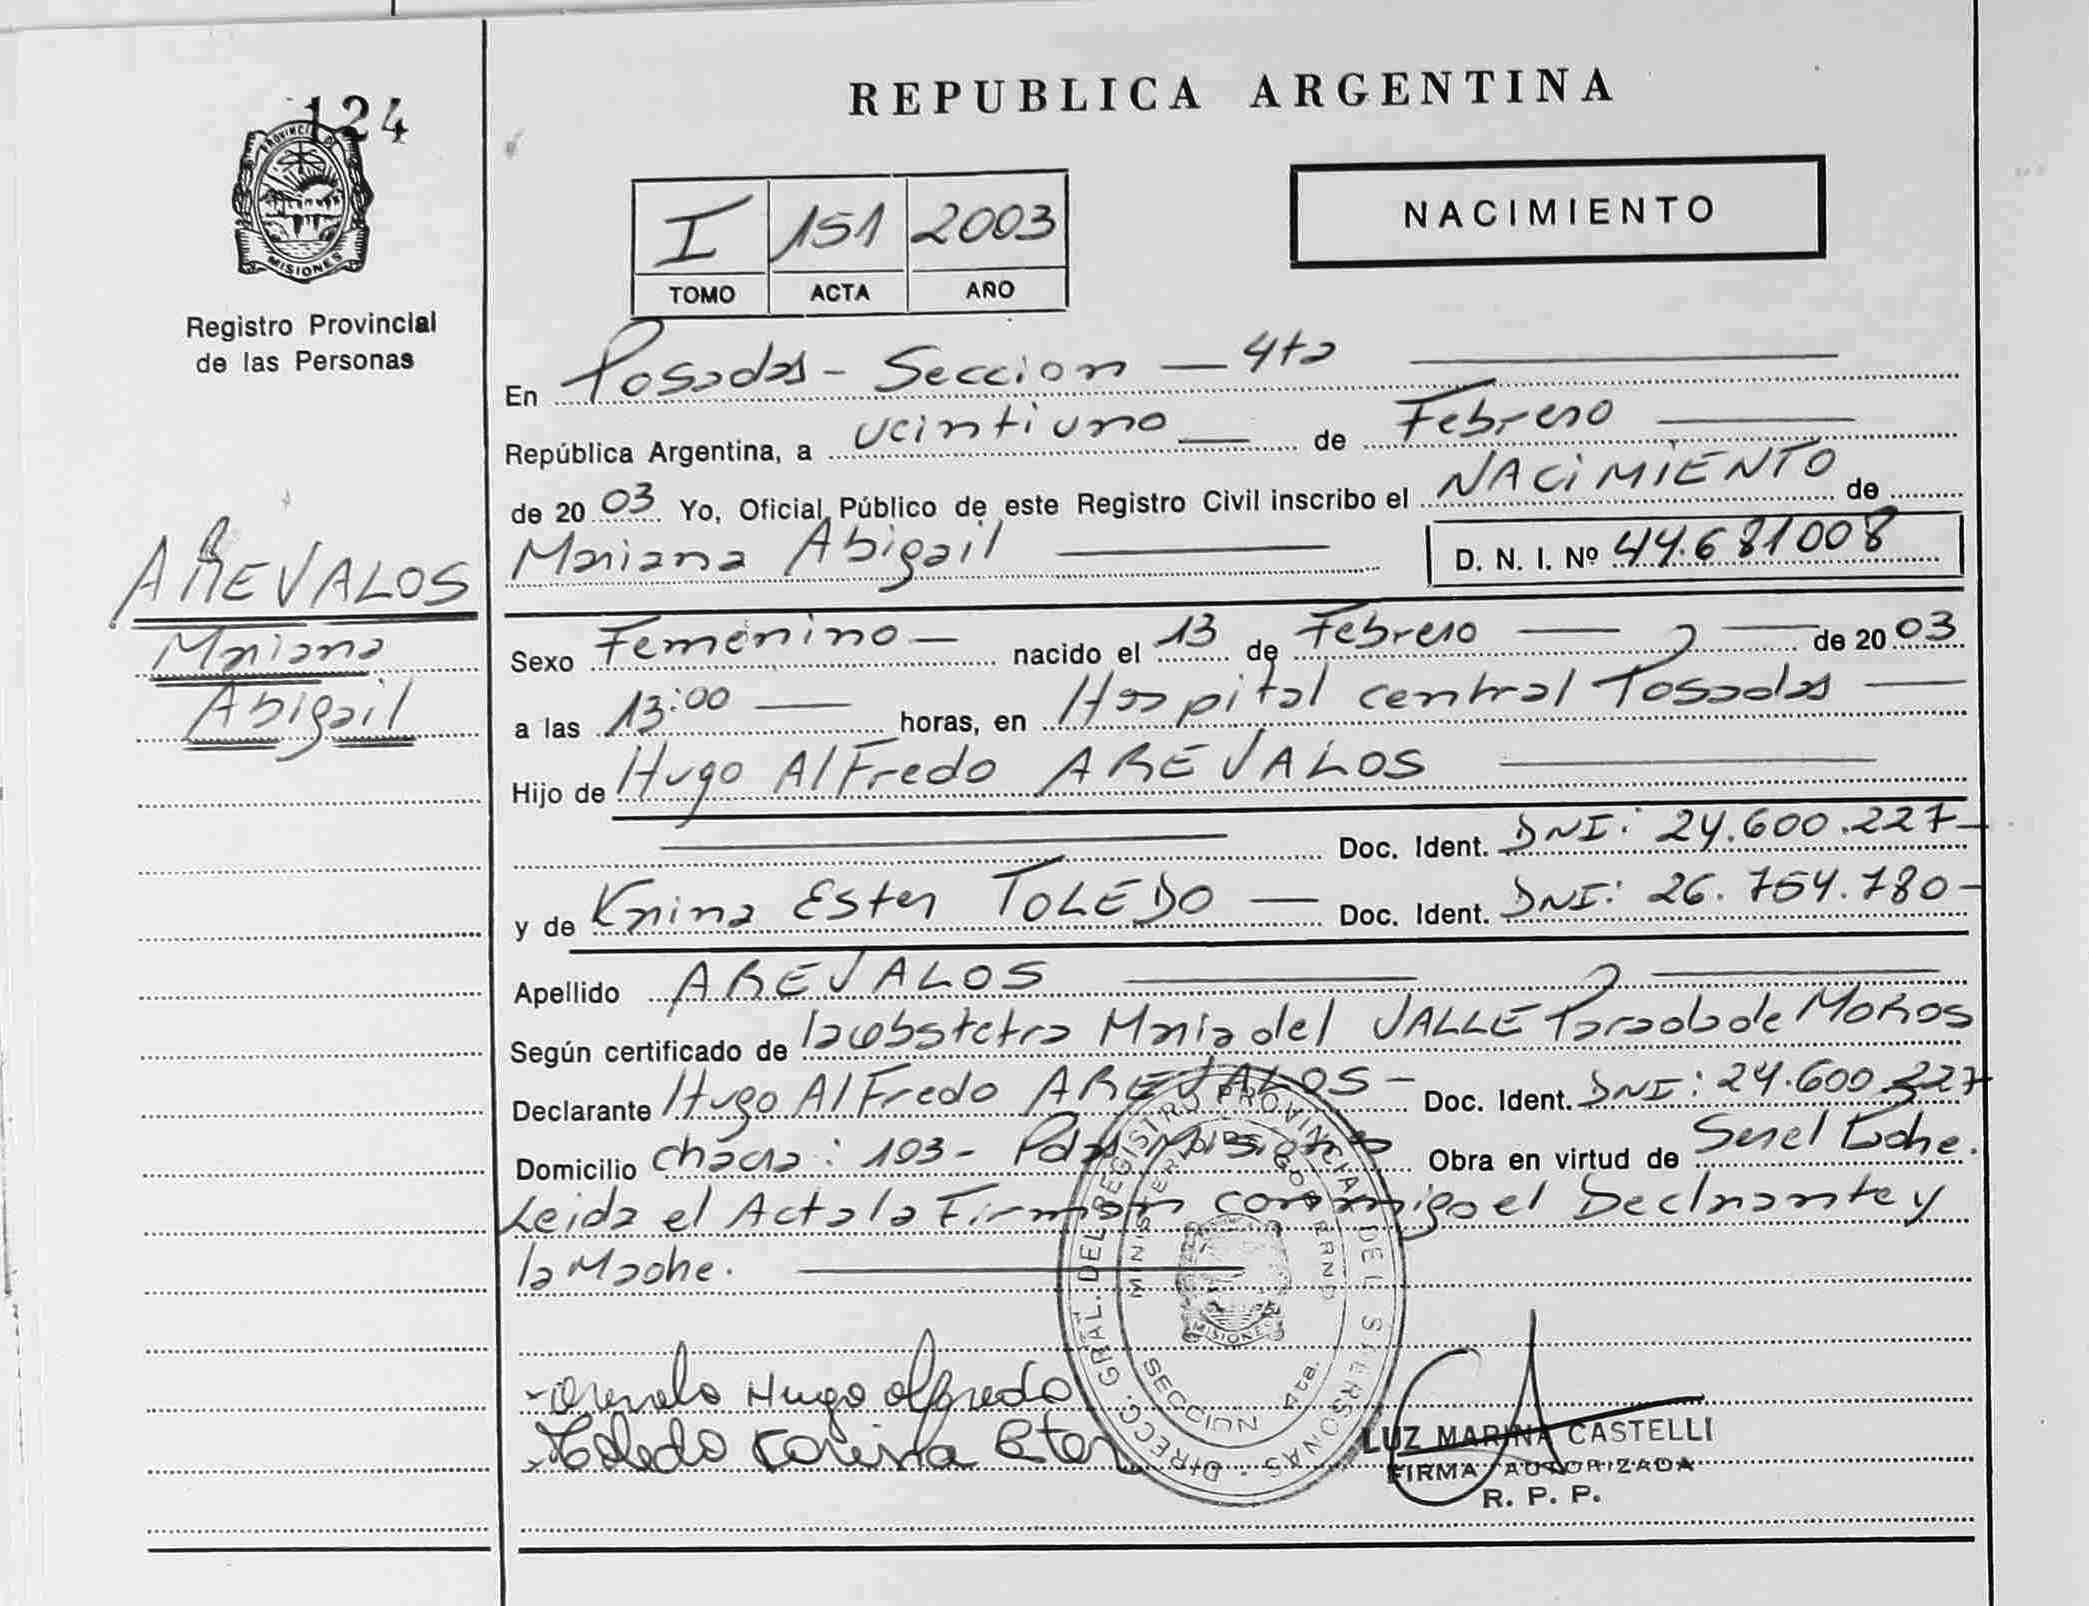 124
PROVINCIA DE
MISIONES
Registro Provincial
de las Personas
AREVALOS
Mariana
Abigail
REPUBLICA ARGENTINA
NACIMIENTO
I 151 2003
TOMO ACTA AÑO
En Posadas - Seccion - 4ta
República Argentina, a veintiuno de Febrero
de 2003 Yo, Oficial Público de este Registro Civil inscribo el NACIMIENTO de
Mariana Abigail D. N. I. Nº 44.681008
Sexo Femenino - nacido el 13 de Febrero de 2003
a las 13:00 horas, en Hospital central Posadas
Hijo de Hugo Alfredo AREVALOS
Doc. Ident. DNI: 24.600.227-
y de Karina Ester TOLEDO - Doc. Ident. DNI: 26.754.780-
Apellido AREVALOS
Según certificado de la obstetra Maria del VALLE Parada de MOROS
Declarante Hugo Alfredo AREVALOS - Doc. Ident. DNI: 24.600.227
Domicilio chacra: 103- Pdas Misiones Obra en virtud de Ser el Padre.
Leida el Acta la Firman conmigo el Declarante y
la Madre.
Arevalo Hugo Alfredo
Toledo Karina Ester
DIRECC. GRAL. DEL REGISTRO PROVINCIAL DE LAS PERSONAS
MINISTERIO DE GOBIERNO
MISIONES
SECCION 4ta.
LUZ MARINA CASTELLI
FIRMA AUTORIZADA
R. P. P.